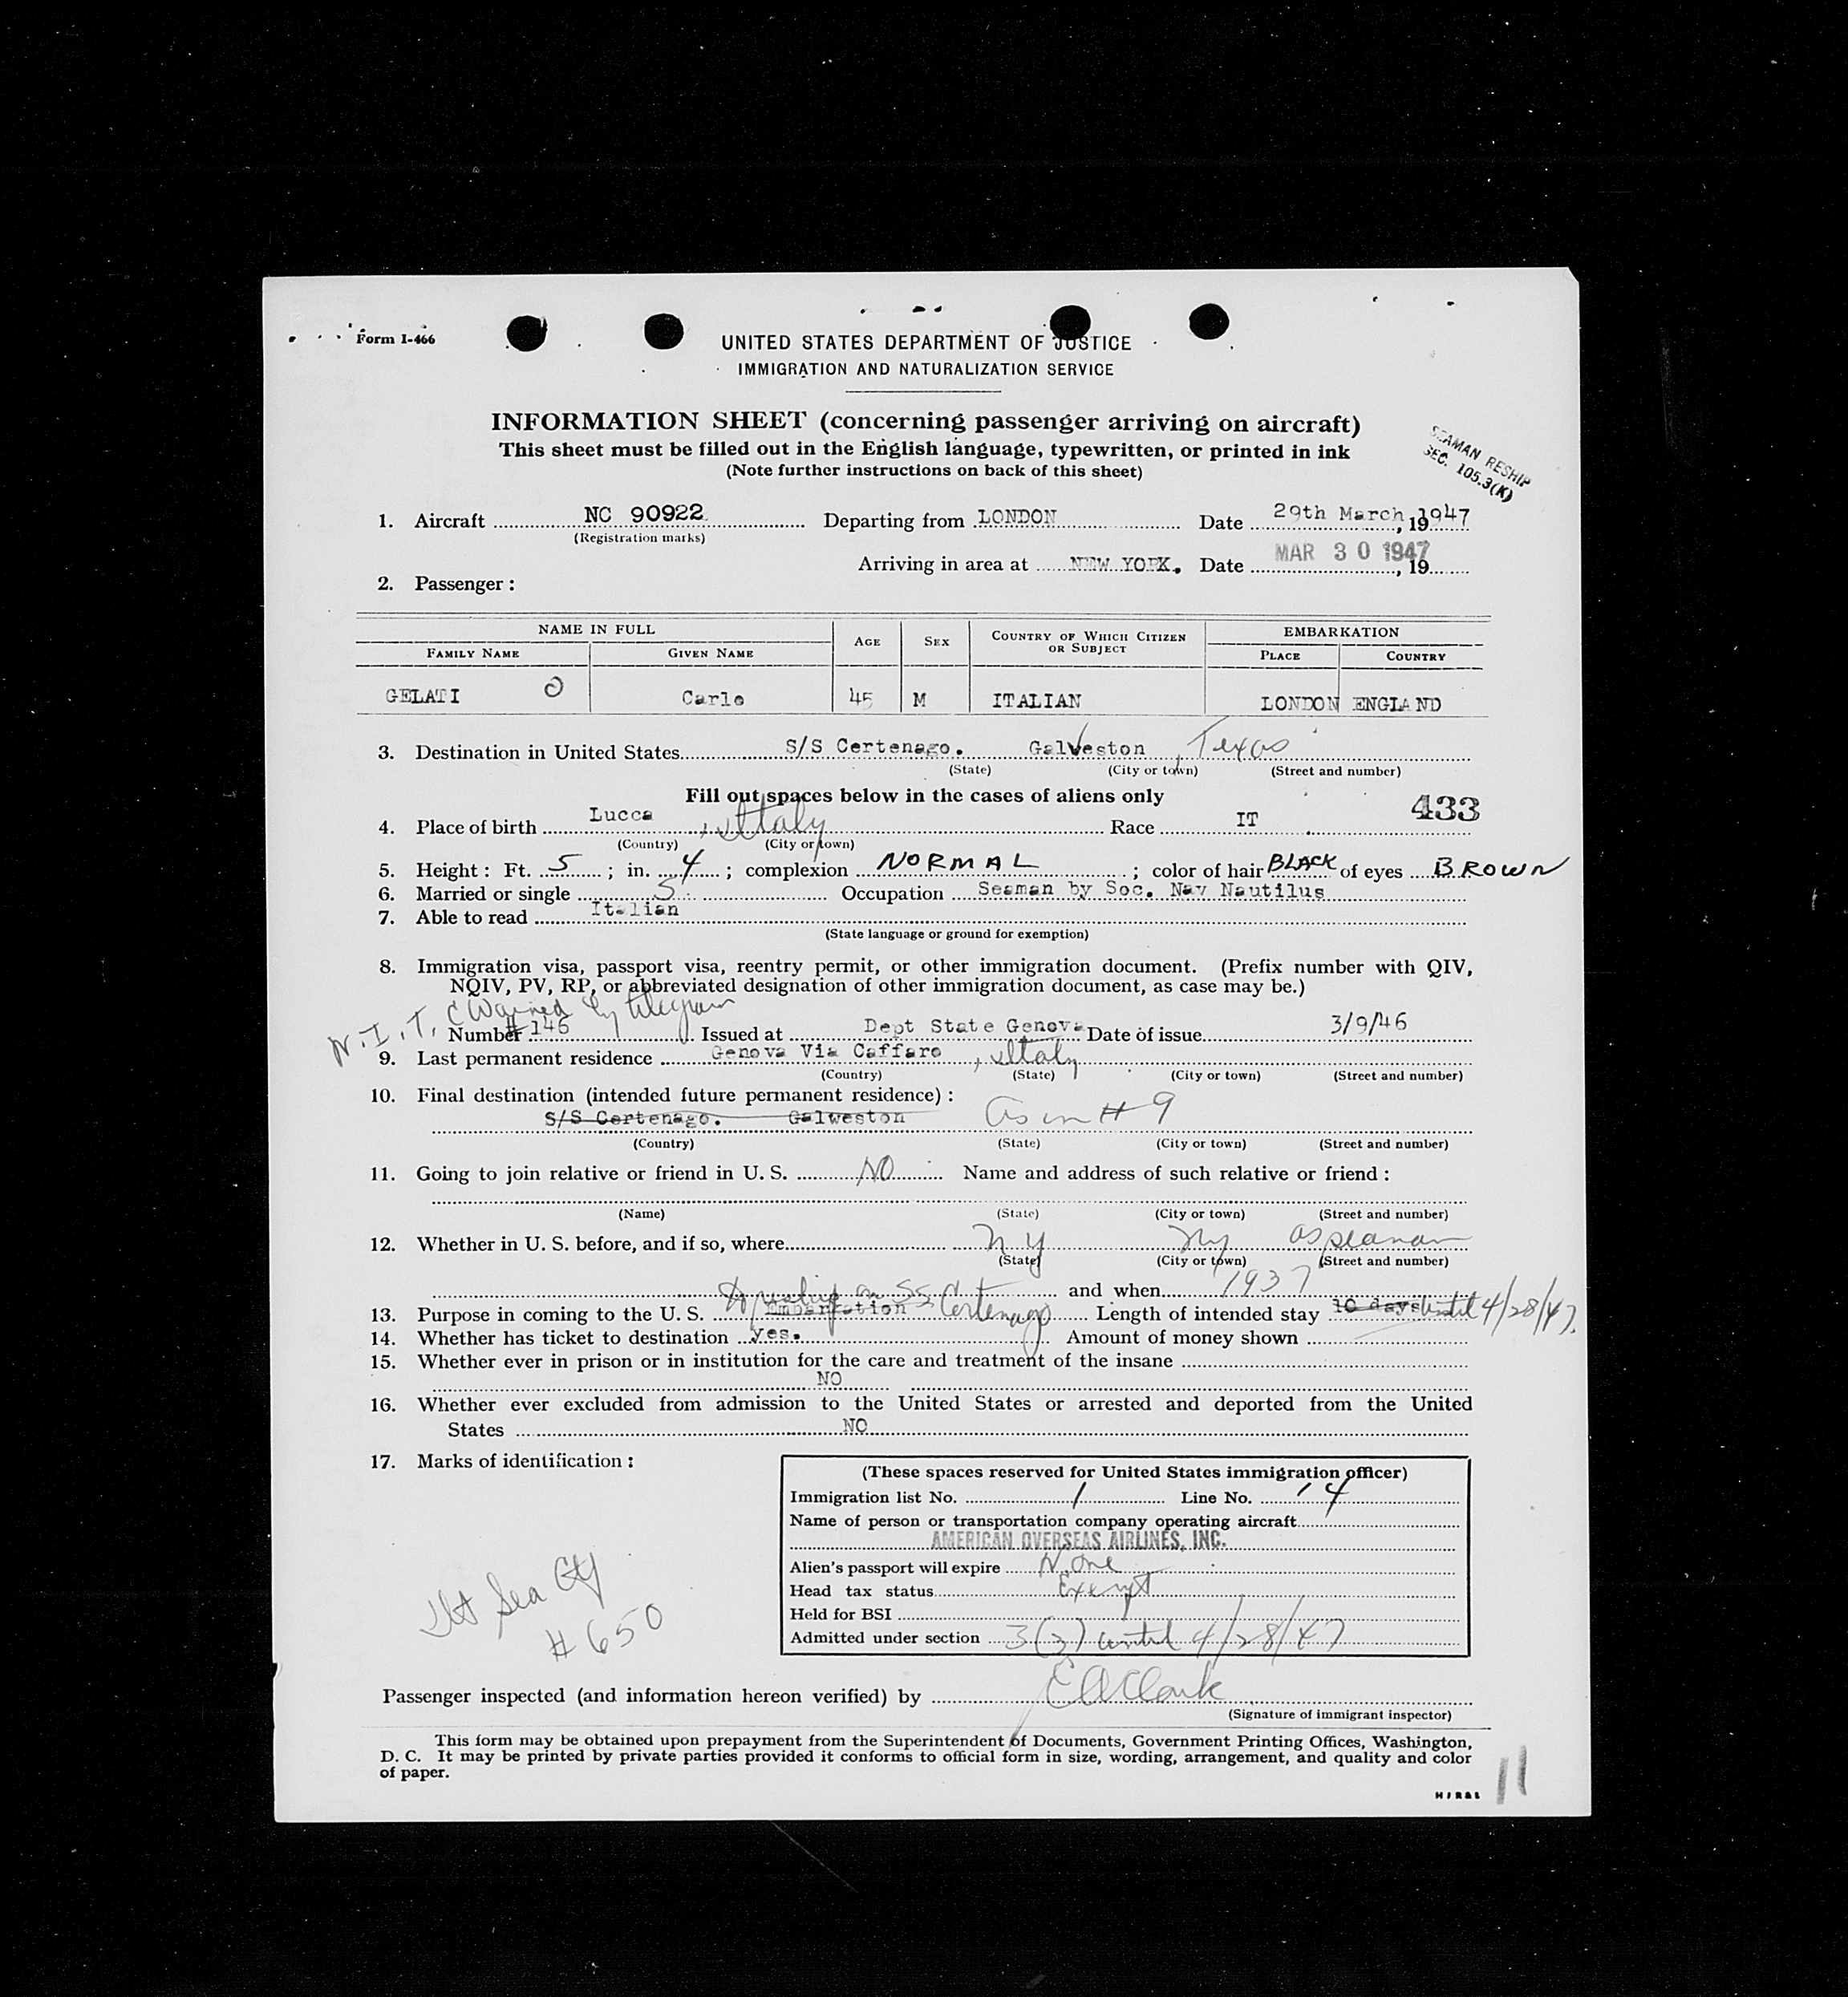 Form I-466
UNITED STATES DEPARTMENT OF JUSTICE
IMMIGRATION AND NATURALIZATION SERVICE
INFORMATION SHEET (concerning passenger arriving on aircraft)
This sheet must be filled out in the English language, typewritten, or printed in ink
(Note further instructions on back of this sheet)
SEAMAN RESHIP
SEC. 105.3(K)
1. Aircraft NC 90922 Departing from LONDON Date 29th March, 1947
(Registration marks)
Arriving in area at NEW YORK. Date MAR 30 1947, 19
2. Passenger:
NAME IN FULL AGE SEX COUNTRY OF WHICH CITIZEN OR SUBJECT EMBARKATION
FAMILY NAME GIVEN NAME PLACE COUNTRY
GELATI Carlo 45 M ITALIAN LONDON ENGLAND
3. Destination in United States S/S Certenago. Galveston, Texas
(State) (City or town) (Street and number)
Fill out spaces below in the cases of aliens only
433
4. Place of birth Lucca, Italy Race IT
(Country) (City or town)
5. Height: Ft. 5; in. 4; complexion NORMAL; color of hair BLACK of eyes BROWN
6. Married or single S Occupation Seaman by Soc. Nav Nautilus
7. Able to read Italian
(State language or ground for exemption)
8. Immigration visa, passport visa, reentry permit, or other immigration document. (Prefix number with QIV,
NQIV, PV, RP, or abbreviated designation of other immigration document, as case may be.)
N.I.T. by telegram
Number #146 Issued at Dept State Genova Date of issue 3/9/46
9. Last permanent residence Genova Via Caffaro, Italy
(Country) (State) (City or town) (Street and number)
10. Final destination (intended future permanent residence):
S/S Certenago. Galweston as in #9
(Country) (State) (City or town) (Street and number)
11. Going to join relative or friend in U. S. NO Name and address of such relative or friend:
(Name) (State) (City or town) (Street and number)
12. Whether in U. S. before, and if so, where NY NY as seaman
(State) (City or town) (Street and number)
and when 1937
13. Purpose in coming to the U. S. Embarkation on SS Certenago Length of intended stay 10 days until 4/28/47.
14. Whether has ticket to destination yes. Amount of money shown
15. Whether ever in prison or in institution for the care and treatment of the insane
NO
16. Whether ever excluded from admission to the United States or arrested and deported from the United
States NO
17. Marks of identification:
(These spaces reserved for United States immigration officer)
Immigration list No. 1 Line No. 14
Name of person or transportation company operating aircraft
AMERICAN OVERSEAS AIRLINES, INC.
Alien's passport will expire None
Head tax status Exempt
Held for BSI
Admitted under section 3(3) until 4/28/47
#650
Passenger inspected (and information hereon verified) by E A Clark
(Signature of immigrant inspector)
This form may be obtained upon prepayment from the Superintendent of Documents, Government Printing Offices, Washington,
D. C. It may be printed by private parties provided it conforms to official form in size, wording, arrangement, and quality and color
of paper.
11